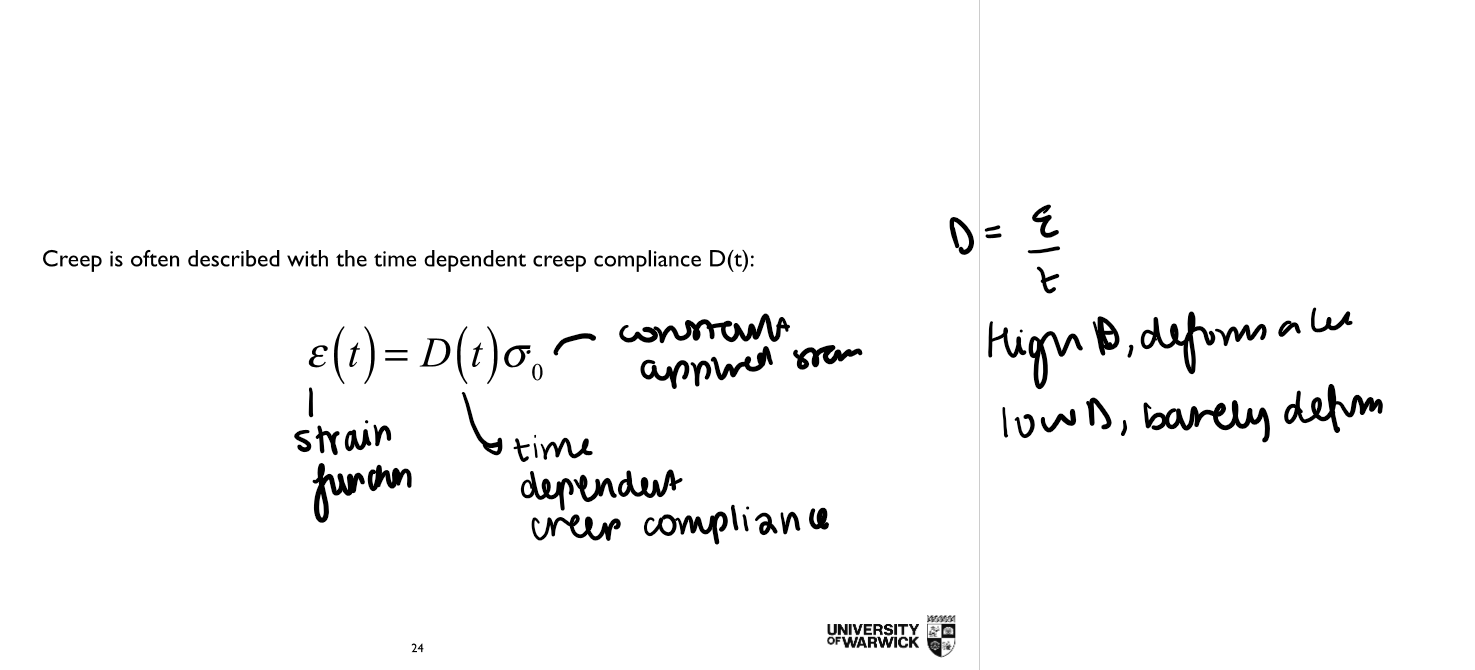 Creep is often described with the time dependent creep compliance D(t):
ε(t) = D(t)σ₀
constant
applied
strain
function
time
dependent
creep compliance
D = ε
t
High D, deforms a
low D, barely deform
24
UNIVERSITY
OF WARWICK